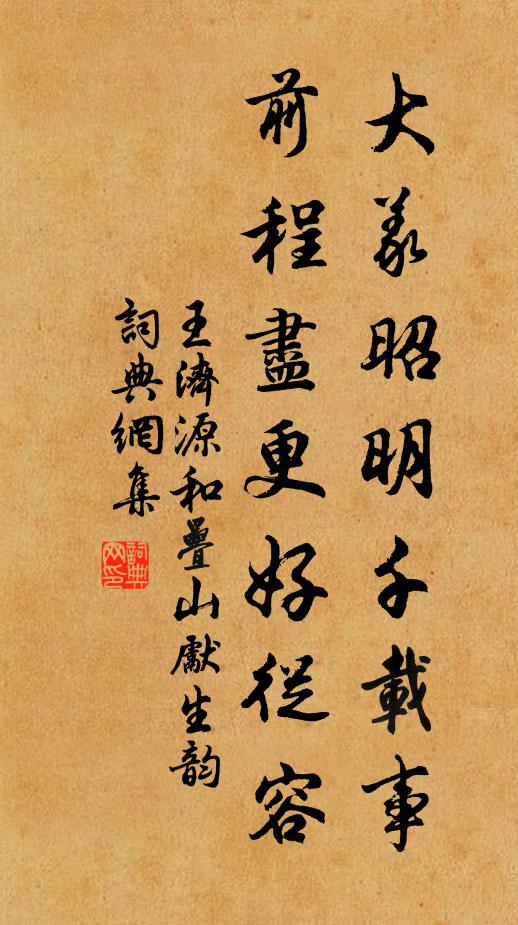 大义昭明千載事
前程盡更好從容
王濟源和疊山獻生韵
詞典網集
詞典網印